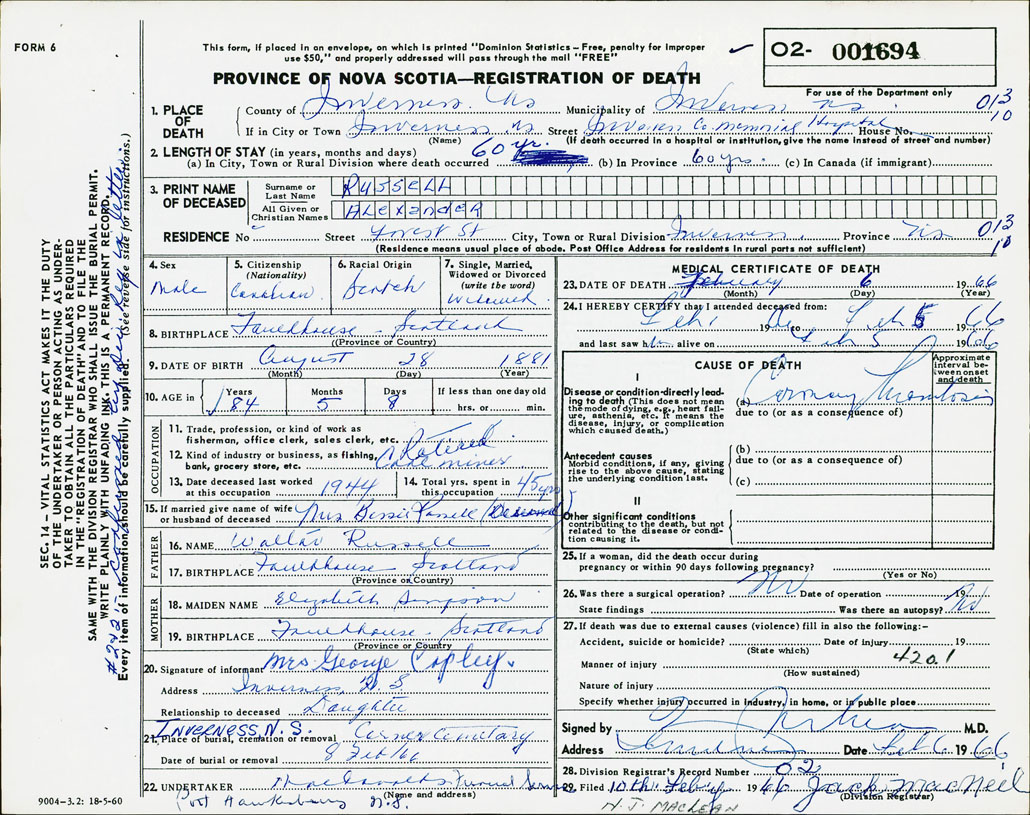 FORM 6
This form, if placed in an envelope, on which is printed "Dominion Statistics – Free, penalty for improper
use $50," and properly addressed will pass through the mail "FREE"
✓ 02- 001694
PROVINCE OF NOVA SCOTIA—REGISTRATION OF DEATH
For use of the Department only
013
10
1. PLACE OF DEATH
County of Inverness NS Municipality of Inverness NS
If in City or Town Inverness NS Street Inverness Co. Memorial Hospital House No.
(Name) (If death occurred in a hospital or institution, give the name instead of street and number)
2. LENGTH OF STAY (in years, months and days) 60 yr.
(a) In City, Town or Rural Division where death occurred (b) In Province 60 yrs. (c) In Canada (if immigrant)
3. PRINT NAME OF DECEASED
Surname or Last Name RUSSELL
All Given or Christian Names ALEXANDER
RESIDENCE No Street Forest St City, Town or Rural Division Inverness Province NS
013
10
(Residence means usual place of abode. Post Office Address for residents in rural parts not sufficient)
4. Sex Male
5. Citizenship (Nationality) Canadian
6. Racial Origin Scotch
7. Single, Married, Widowed or Divorced (write the word) Widowed
8. BIRTHPLACE Fauldhouse Scotland
(Province or Country)
9. DATE OF BIRTH August 28 1881
(Month) (Day) (Year)
10. AGE in Years 84 Months 5 Days 8 If less than one day old hrs. or min.
OCCUPATION
11. Trade, profession, or kind of work as fisherman, office clerk, sales clerk, etc. Retired
12. Kind of industry or business, as fishing, bank, grocery store, etc. Coal miner
13. Date deceased last worked at this occupation 1944
14. Total yrs. spent in this occupation 45 yrs
15. If married give name of wife or husband of deceased Mrs Bessie Russell (Deceased)
FATHER
16. NAME Walter Russell
17. BIRTHPLACE Fauldhouse Scotland
(Province or Country)
MOTHER
18. MAIDEN NAME Elizabeth Simpson
19. BIRTHPLACE Fauldhouse Scotland
(Province or Country)
20. Signature of informant Mrs George Copley
Address Inverness N S
Relationship to deceased Daughter
INVERNESS, N.S.
21. Place of burial, cremation or removal Cemetary
Date of burial or removal 8 Feb 66
22. UNDERTAKER MacDonalds Funeral Service
(Name and address)
Port Hawkesbury N.S.
MEDICAL CERTIFICATE OF DEATH
23. DATE OF DEATH February 6 1966
(Month) (Day) (Year)
24. I HEREBY CERTIFY that I attended deceased from:
Feb 1 19 to Feb 5 1966
and last saw him alive on Feb 5 1966
CAUSE OF DEATH
Approximate interval between onset and death
I
Disease or condition directly leading to death (This does not mean the mode of dying, e.g., heart failure, asthenia, etc. It means the disease, injury, or complication which caused death.)
(a) Coronary Thrombosis
due to (or as a consequence of)
Antecedent causes
Morbid conditions, if any, giving rise to the above cause, stating the underlying condition last.
(b)
due to (or as a consequence of)
(c)
II
Other significant conditions contributing to the death, but not related to the disease or condition causing it.
25. If a woman, did the death occur during pregnancy or within 90 days following pregnancy?
(Yes or No)
26. Was there a surgical operation? No Date of operation 19
State findings Was there an autopsy? No
27. If death was due to external causes (violence) fill in also the following:-
Accident, suicide or homicide? Date of injury 19
(State which)
420.1
Manner of injury
(How sustained)
Nature of injury
Specify whether injury occurred in industry, in home, or in public place
Signed by M.D.
Address Date Feb 6 1966
28. Division Registrar's Record Number 02
29. Filed 10th Feby 1966 Jack MacNeil
(Division Registrar)
N.J. MACLEAN
SEC. 14 – VITAL STATISTICS ACT MAKES IT THE DUTY
OF THE UNDERTAKER OR PERSON ACTING AS UNDER-
TAKER TO OBTAIN ALL THE PARTICULARS REQUIRED
IN THE "REGISTRATION OF DEATH" AND TO FILE THE
SAME WITH THE DIVISION REGISTRAR WHO SHALL ISSUE THE BURIAL PERMIT.
WRITE PLAINLY WITH UNFADING INK. THIS IS A PERMANENT RECORD.
#22 & 21 - Confirmed by letter
Every item of information should be carefully supplied. (See reverse side for instructions.)
9004-3.2: 18-5-60